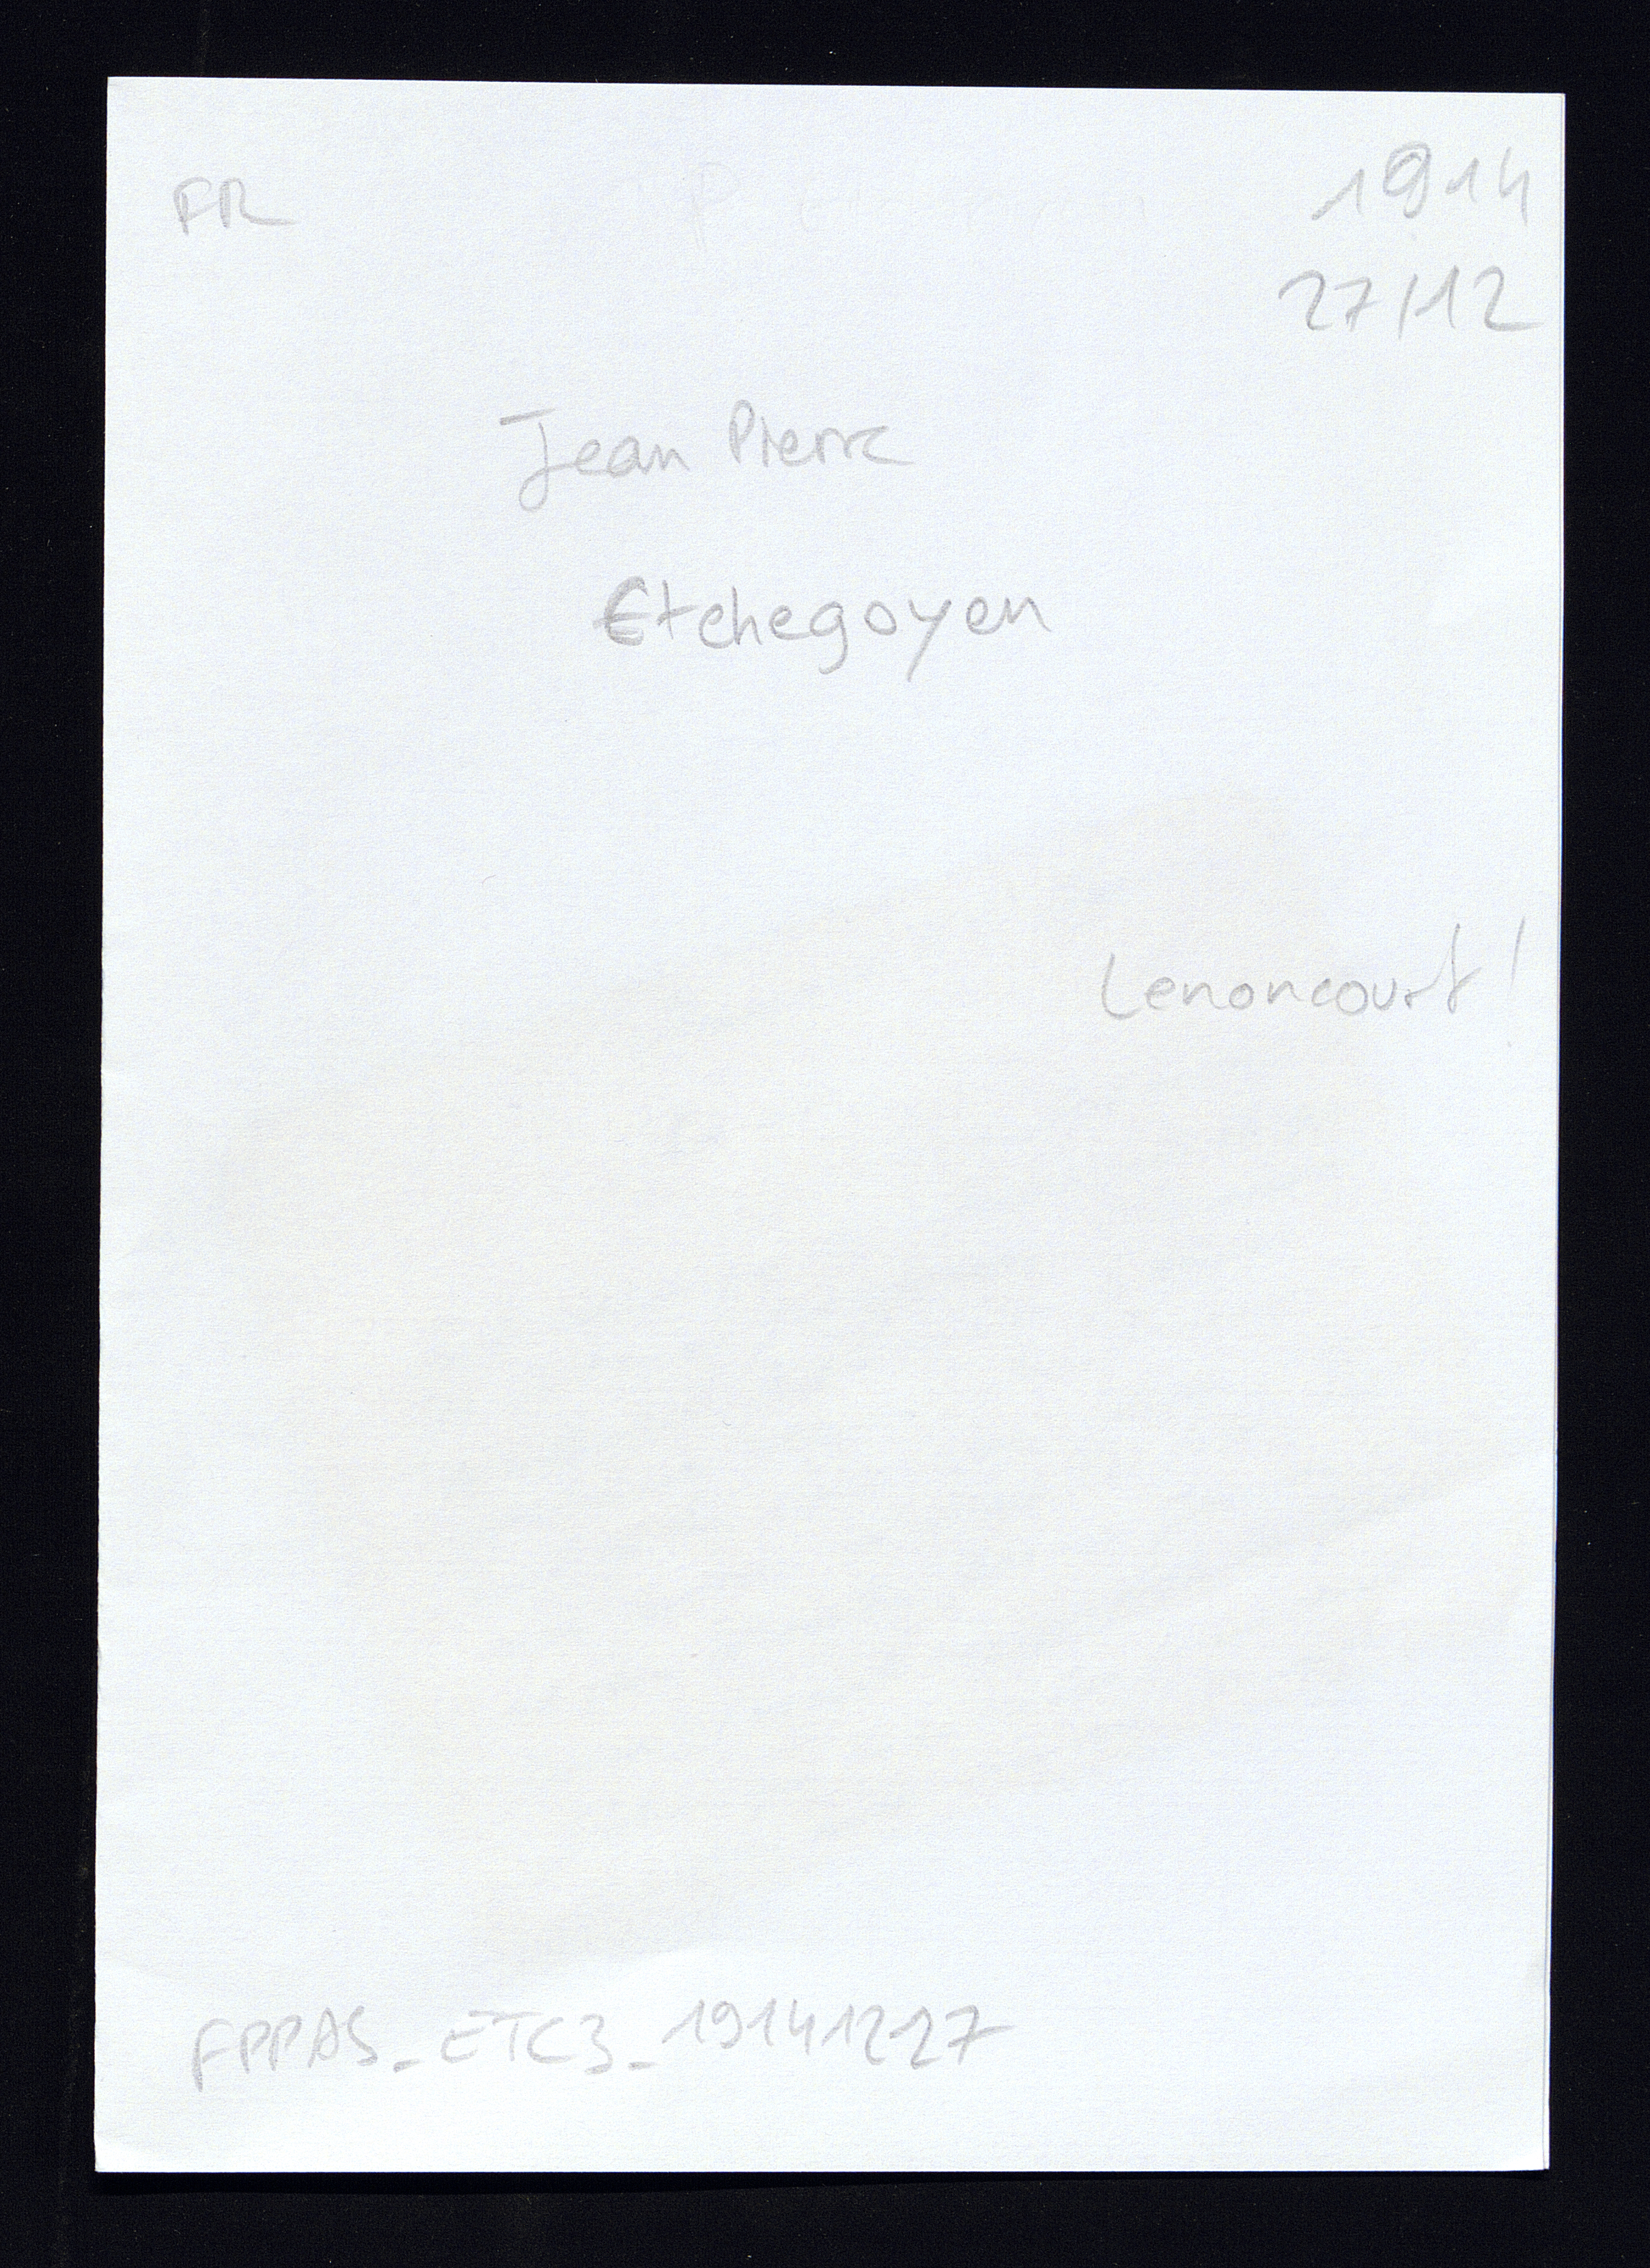 FR
1914
27/12
Jean Pierre
Etchegoyen
Lenoncourt !
FPPAS_ETC3_19141227